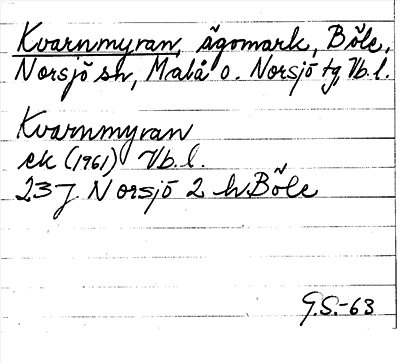 Kvarnmyran, ägomark, Böle,
Norsjö sn, Malå o. Norsjö tg, Vb. l.
Kvarnmyran
ek (1961) Vb. l.
23 J Norsjö 2 h Böle
G.S.-63